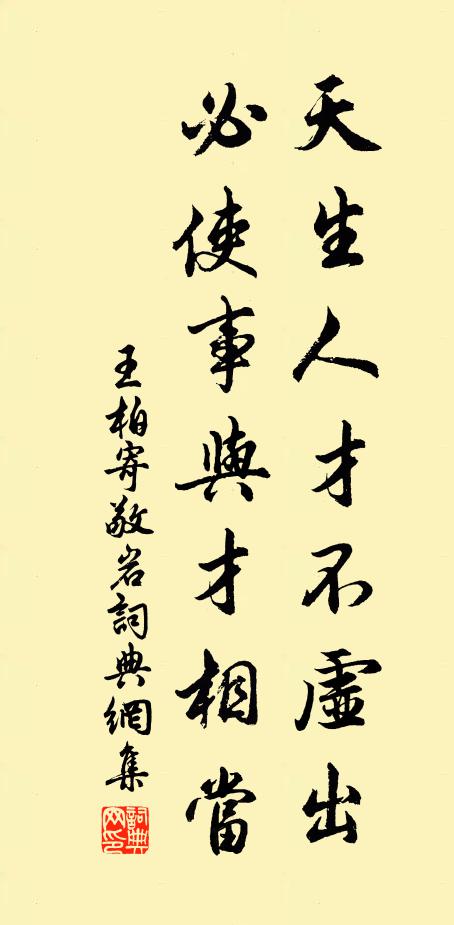 天生人才不虛出
必使事與才相當
王柏寄敬岩詞典網集
詞典网印